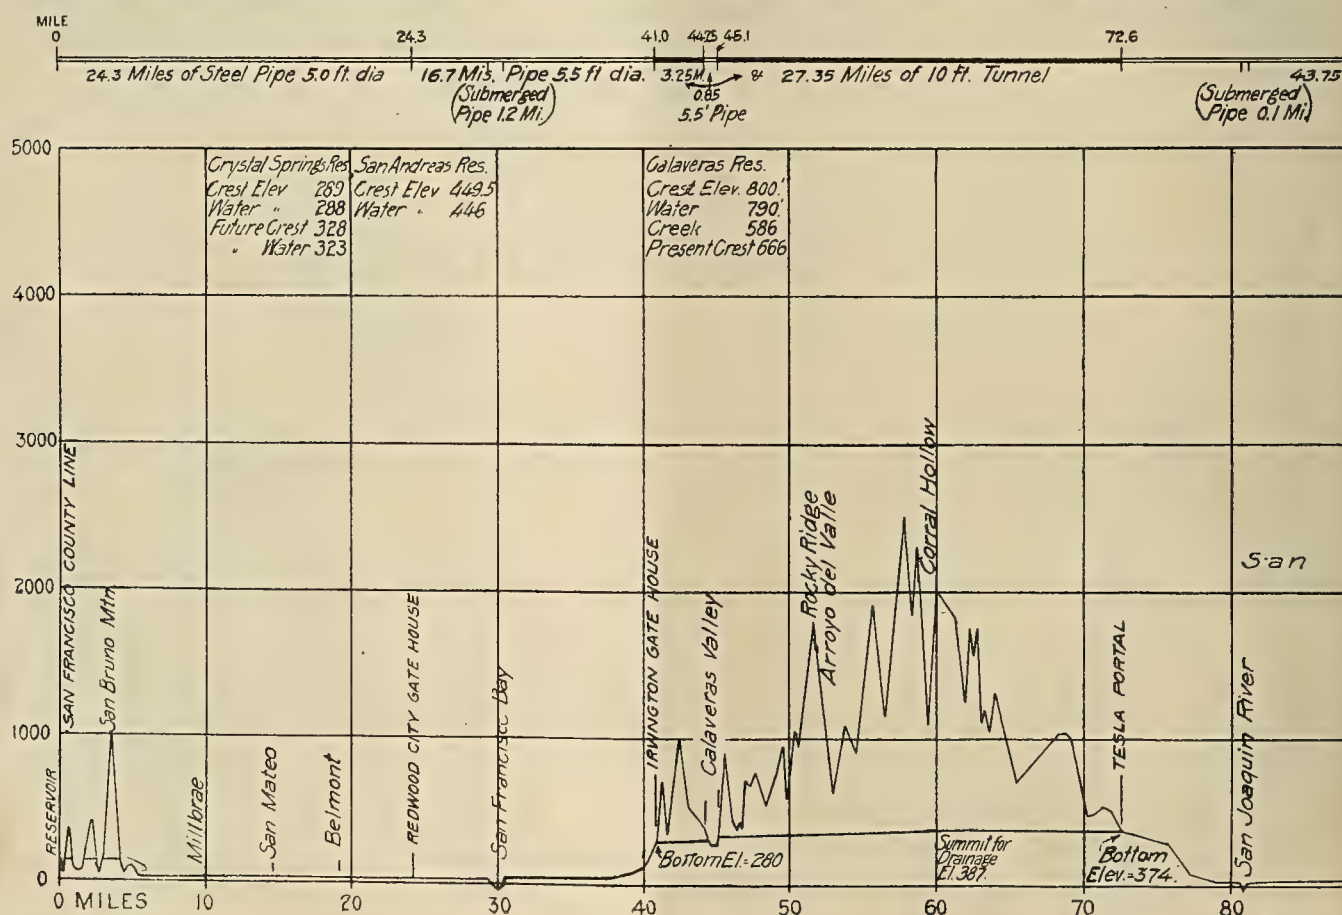 MILE
0 24.3 41.0 44.25 45.1 72.6
24.3 Miles of Steel Pipe 5.0 ft. dia 16.7 Mis. Pipe 5.5 ft dia. 3.25M. & 27.35 Miles of 10 ft. Tunnel 43.75
(Submerged
Pipe 1.2 Mi.)
0.85
5.5' Pipe
(Submerged
Pipe 0.1 Mi)
5000
Crystal Springs Res.
Crest Elev 289
Water " 288
Future Crest 328
" Water 323
San Andreas Res.
Crest Elev 449.5
Water " 446
Calaveras Res.
Crest Elev. 800.'
Water 790.'
Creek 586
Present Crest 666
4000
3000
2000
1000
0
RESERVOIR
SAN FRANCISCO COUNTY LINE
San Bruno Mtn.
Millbrae
San Mateo
Belmont
REDWOOD CITY GATE HOUSE
San Francisco Bay
IRVINGTON GATE HOUSE
Calaveras Valley
Rocky Ridge
Arroyo del Valle
Corral Hollow
TESLA PORTAL
San
San Joaquin River
Bottom El.=280
Summit for
Drainage
El. 387.
Bottom
Elev.=374.
0 MILES 10 20 30 40 50 60 70 80